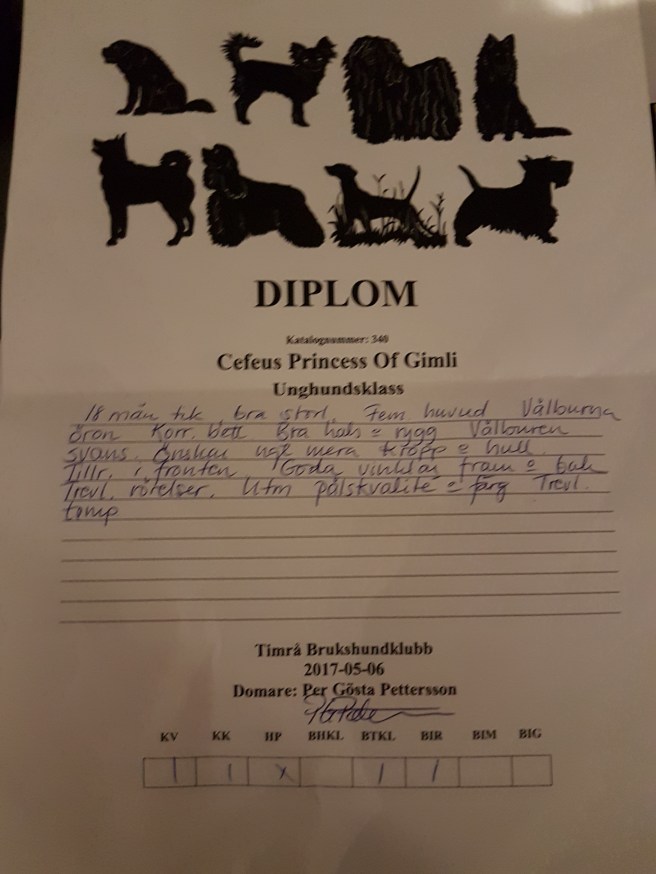 DIPLOM
Katalognummer: 340
Cefeus Princess Of Gimli
Unghundsklass
18 mån tik bra storl. Fem. huvud Välburna
öron Korr. bett Bra hals o rygg Välburen
svans. Önskar ngt mera kropp o hull.
Tillr. i fronten Goda vinklar fram o bak
Trevl. rörelser. Utm pälskvalité o färg Trevl.
temp
Timrå Brukshundklubb
2017-05-06
Domare: Per Gösta Pettersson
KV KK HP BHKL BTKL BIR BIM BIG
1 1 X 1 1